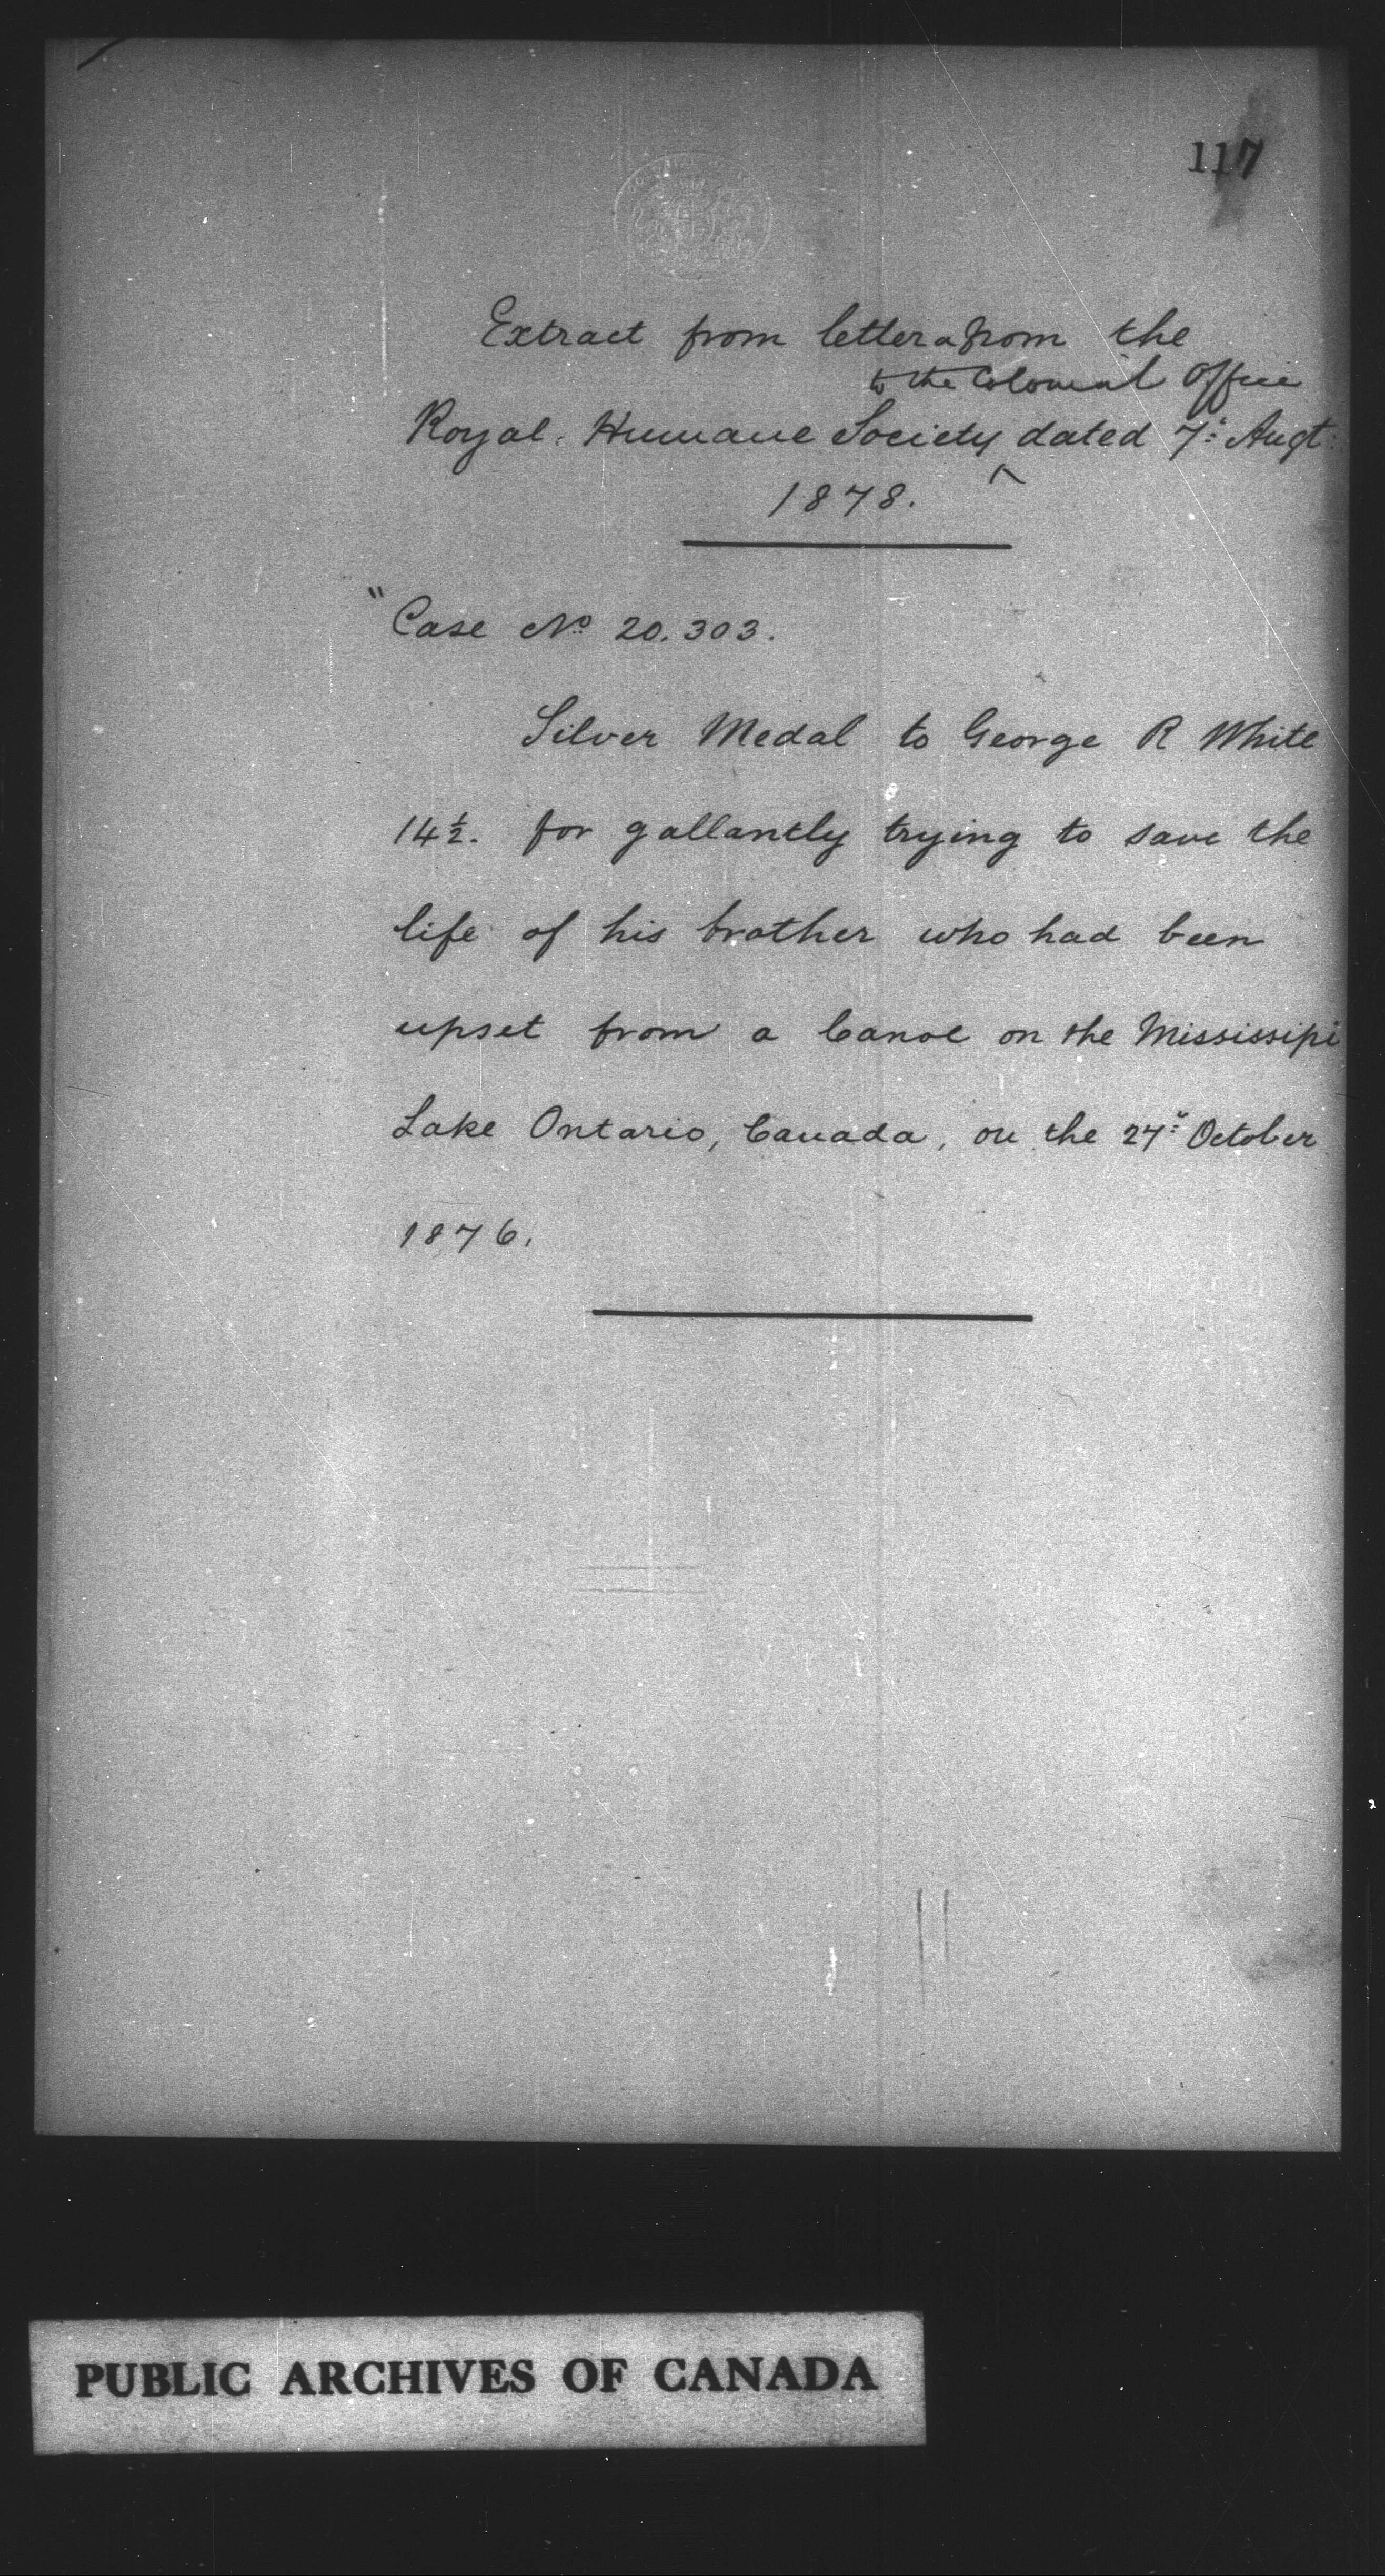 117
Extract from letter from the
to the Colonial Office
Royal Humane Society dated 7: Augt:
1878.
"Case No 20.303.
Silver Medal to George R White
14½. for gallantly trying to save the
life of his brother who had been
upset from a Canoe on the Mississipi
Lake Ontario, Canada, on the 27: October
1876.
PUBLIC ARCHIVES OF CANADA